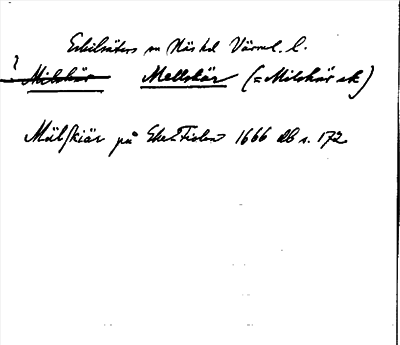 Eskilsäters sn Näs hd Värml. l.
? Milskär Mellskär (= Milskär ek)
Mälskiär på Eke Fielen 1666 db s. 172